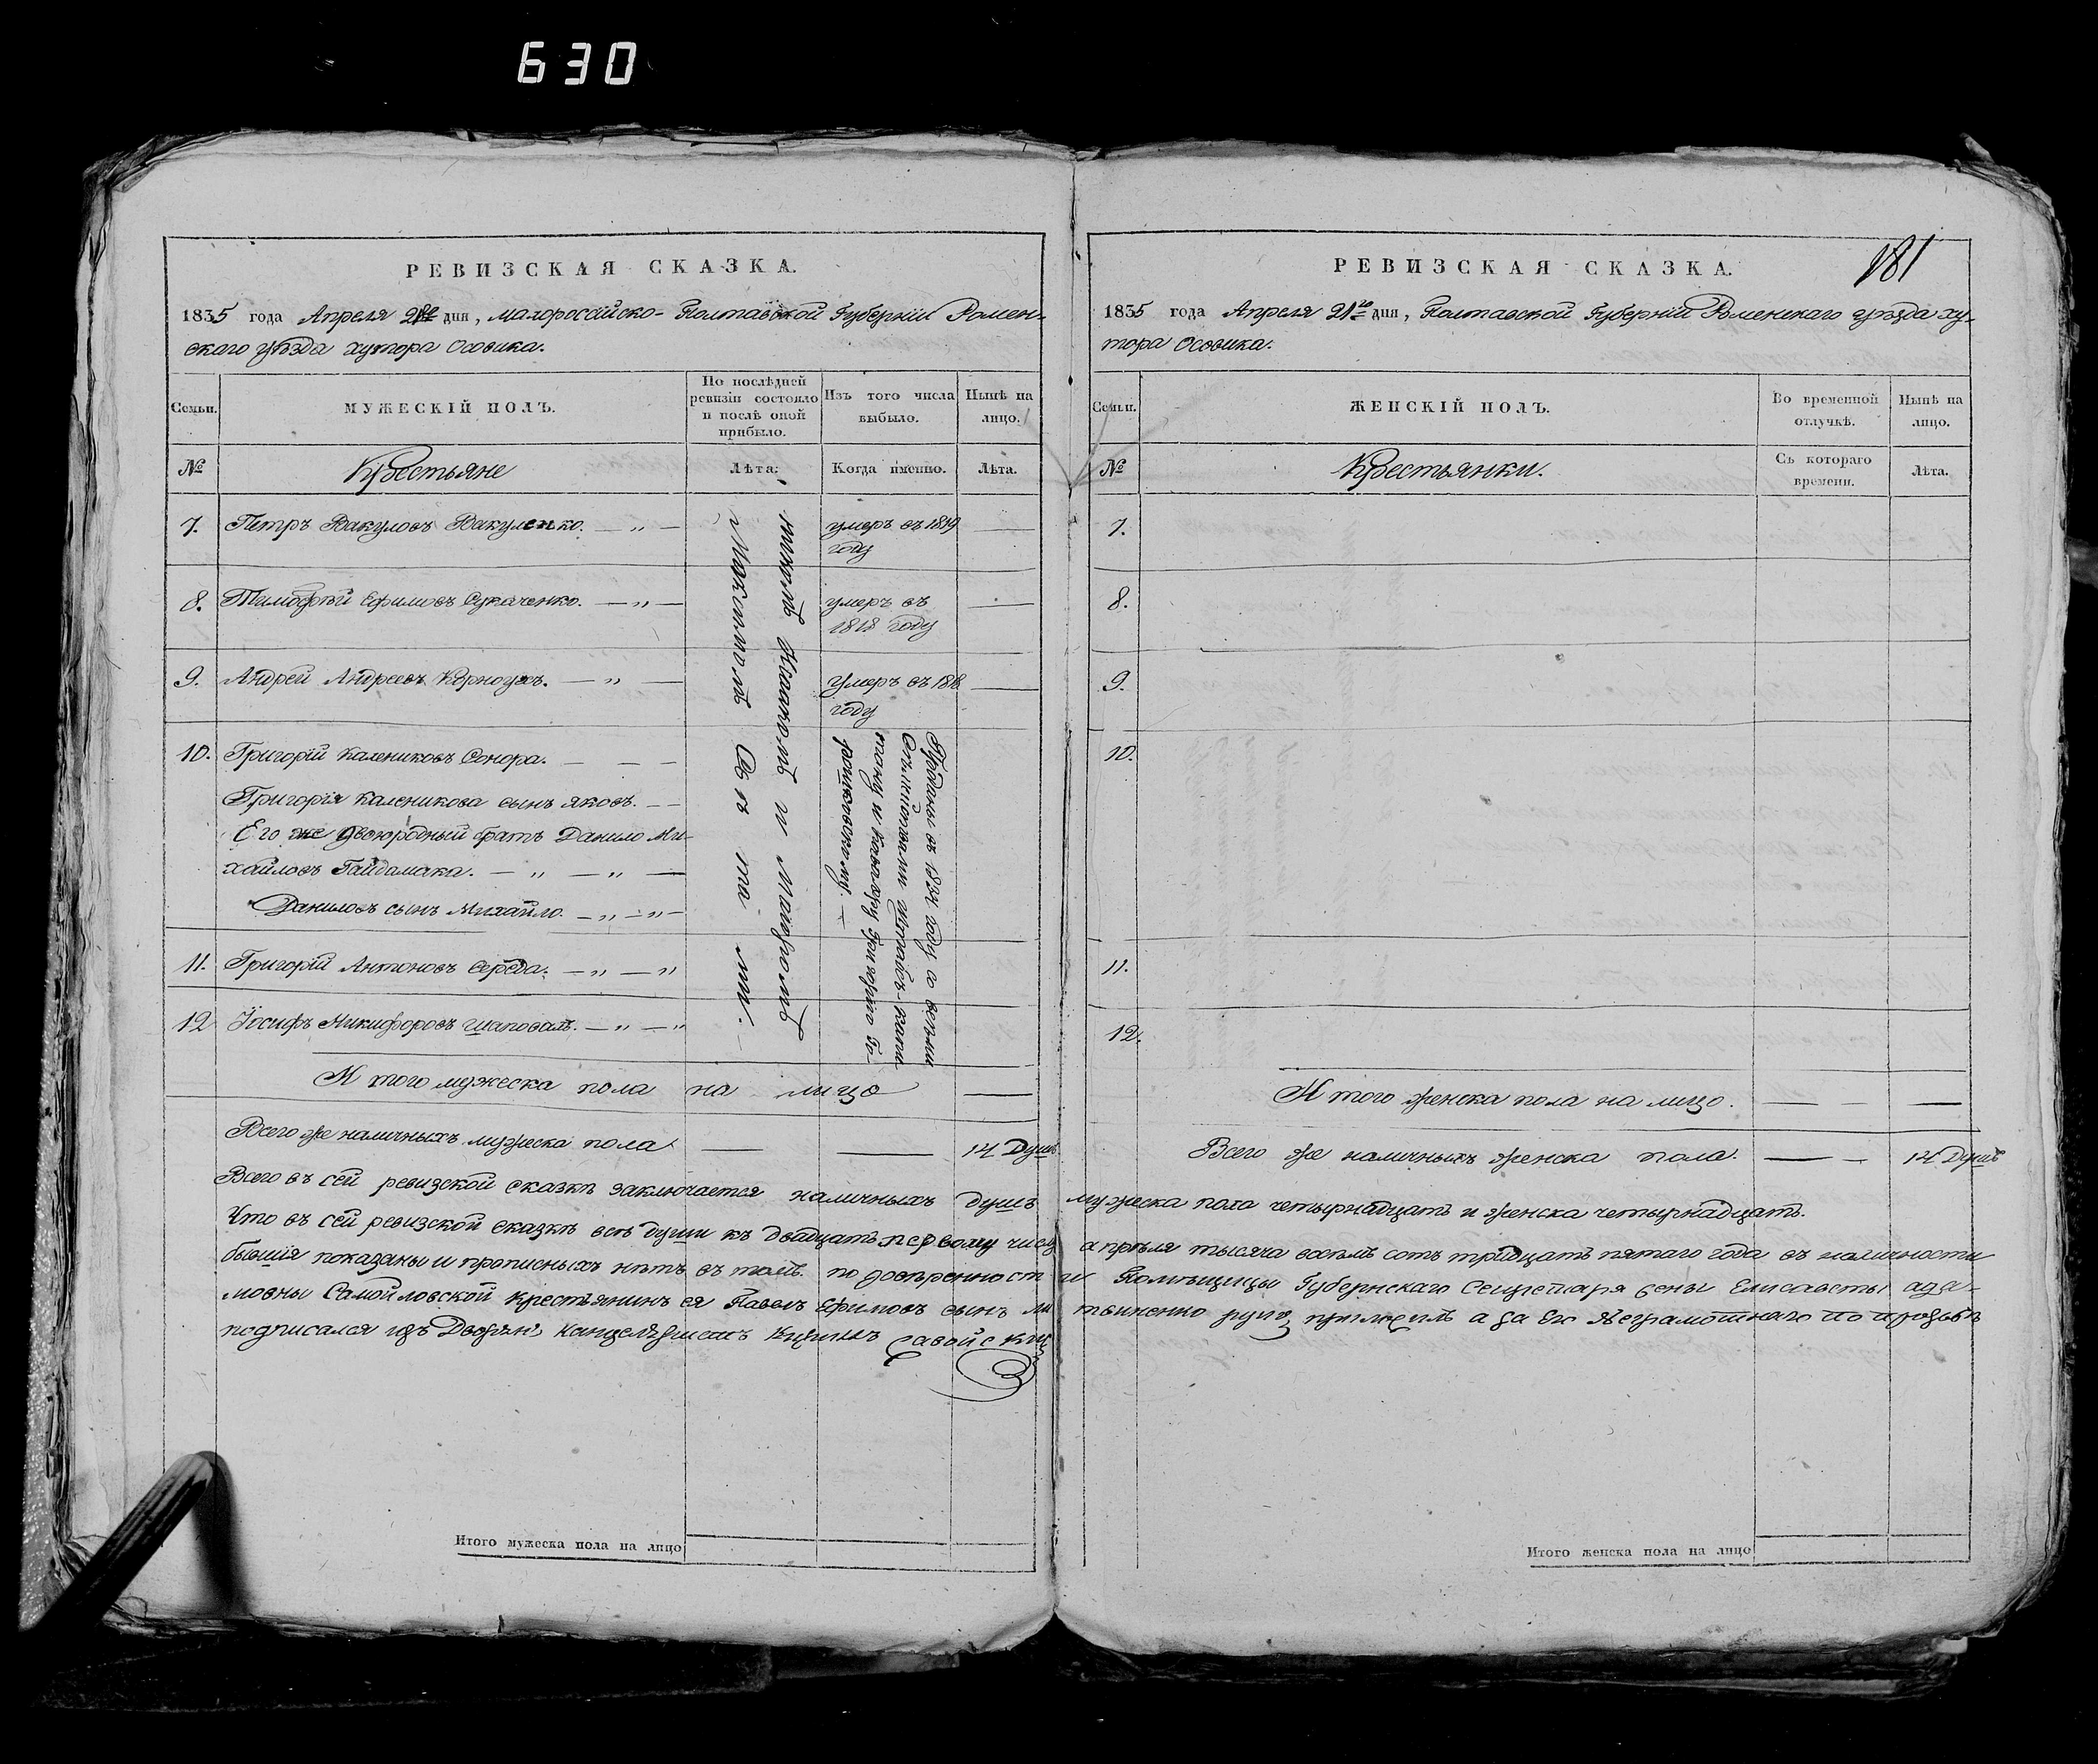 630
РЕВИЗСКАЯ СКАЗКА.
1835 года Апреля 21го дня, малоросійско-Полтавской Губерніи Ромен-
скаго уѣзда хутора Осовика.
Семьи.
МУЖЕСКІЙ ПОЛЪ.
По послѣдней
ревизіи состояло
и послѣ оной
прибыло.
Изъ того числа
выбыло.
Нынѣ на
лицо.
№
Крестьяне
Лѣта.
Когда именно.
Лѣта.
7. Петръ Вакуловъ Вакуленко. — „ —
умеръ въ 1819
году
8. Тимофѣй Ефимовъ Сукаченко. — „ —
умеръ въ
1818 году
9. Андрей Андреевъ Карноухъ. — „ —
умеръ въ 1818
году
10. Григорій Калениковъ Сокора. — — —
Григорія Каленикова сынъ Яковъ. — —
Его же двоюродный братъ Данило Ми-
хайловъ Гайдамака. — „ — „ —
Даниловъ сынъ Михайло. — „ — „ —
11. Григорій Антоновъ Середа. — „ — „
12 Іосифъ Никифоровъ Шаповалъ. — „ — „
Проданы въ 1834 году со всеми
Штабсъ-капи
тану и кавалеру Григорію
И того мужеска пола на лицо —
Всего же наличныхъ мужеска пола — — 14 Душъ
РЕВИЗСКАЯ СКАЗКА.
181
1835 года Апреля 21го дня, Полтавской Губерніи Роменскаго уѣзда ху-
тора Осовика.
Семьи.
ЖЕНСКІЙ ПОЛЪ.
Во временной
отлучкѣ.
Нынѣ на
лицо.
№
Крестьянки.
Съ котораго
времени.
Лѣта.
7.
8.
9.
10.
11.
12.
И того женска пола на лицо. — —
Всего же наличныхъ женска пола. — — 14 Душъ
Всего въ сей ревизской сказкѣ заключается наличныхъ душъ мужеска пола четырнадцать и женска четырнадцать.
Что въ сей ревизской сказкѣ всѣ души къ двадцать первому числу апрѣля тысяча восемь сотъ тридцать пятаго года въ наличности
бывшія показаны и прописныхъ нѣтъ въ томъ. по довѣренности Помѣщицы Губернскаго Секретаря жены Елисаветы Ада-
мовны Самойловской крестьянинъ ея Павелъ Ефимовъ сынъ Литвиненко руку приложилъ а за его неграмотнаго по прозьбѣ
подписался изъ Дворянъ канцеляристъ
Итого мужеска пола на лицо
Итого женска пола на лицо